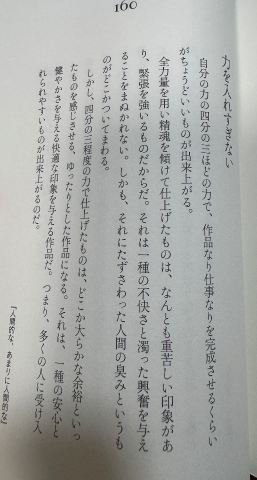 160
力を入れすぎない
自分の力の四分の三ほどの力で、作品なり仕事なりを完成させるくらい
がちょうどいいものが出来上がる。
全力量を用い精魂を傾けて仕上げたものは、なんとも重苦しい印象があ
り、緊張を強いるものだからだ。それは一種の不快さと濁った興奮を与え
ることをまぬかれない。しかも、それにたずさわった人間の臭みというも
のがどこかついてまわる。
しかし、四分の三程度の力で仕上げたものは、どこか大らかな余裕といっ
たものを感じさせる、ゆったりとした作品になる。それは、一種の安心と
健やかさを与える快適な印象を与える作品だ。つまり、多くの人に受け入
れられやすいものが出来上がるのだ。
『人間的な、あまりに人間的な』